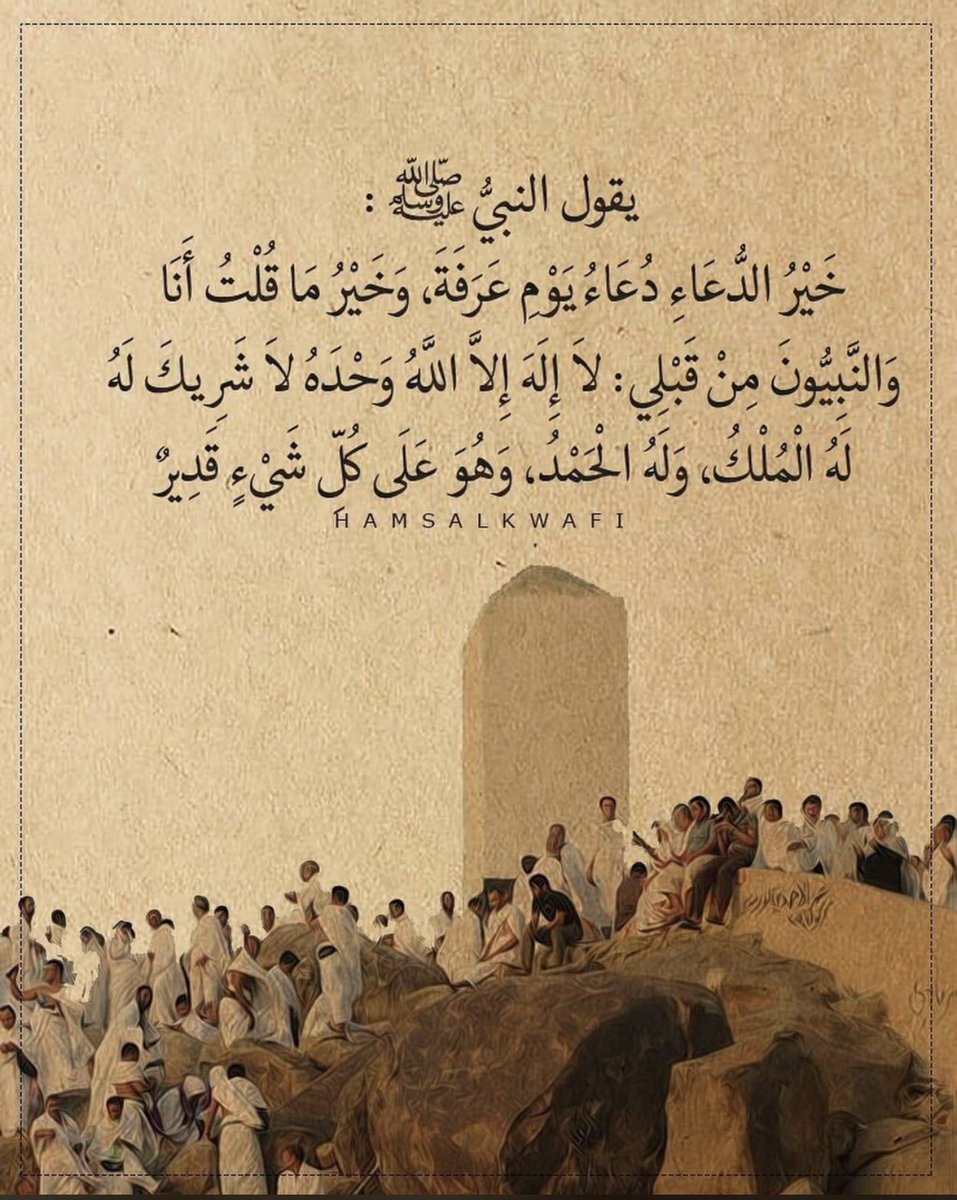 يقول النبيُّ ﷺ :
خَيْرُ الدُّعَاءِ دُعَاءُ يَوْمِ عَرَفَةَ، وَخَيْرُ مَا قُلْتُ أَنَا
وَالنَّبِيُّونَ مِنْ قَبْلِي: لاَ إِلَهَ إِلاَّ اللَّهُ وَحْدَهُ لاَ شَرِيكَ لَهُ
لَهُ الْمُلْكُ، وَلَهُ الْحَمْدُ، وَهُوَ عَلَى كُلِّ شَيْءٍ قَدِيرٌ
HAMSALKWAFI